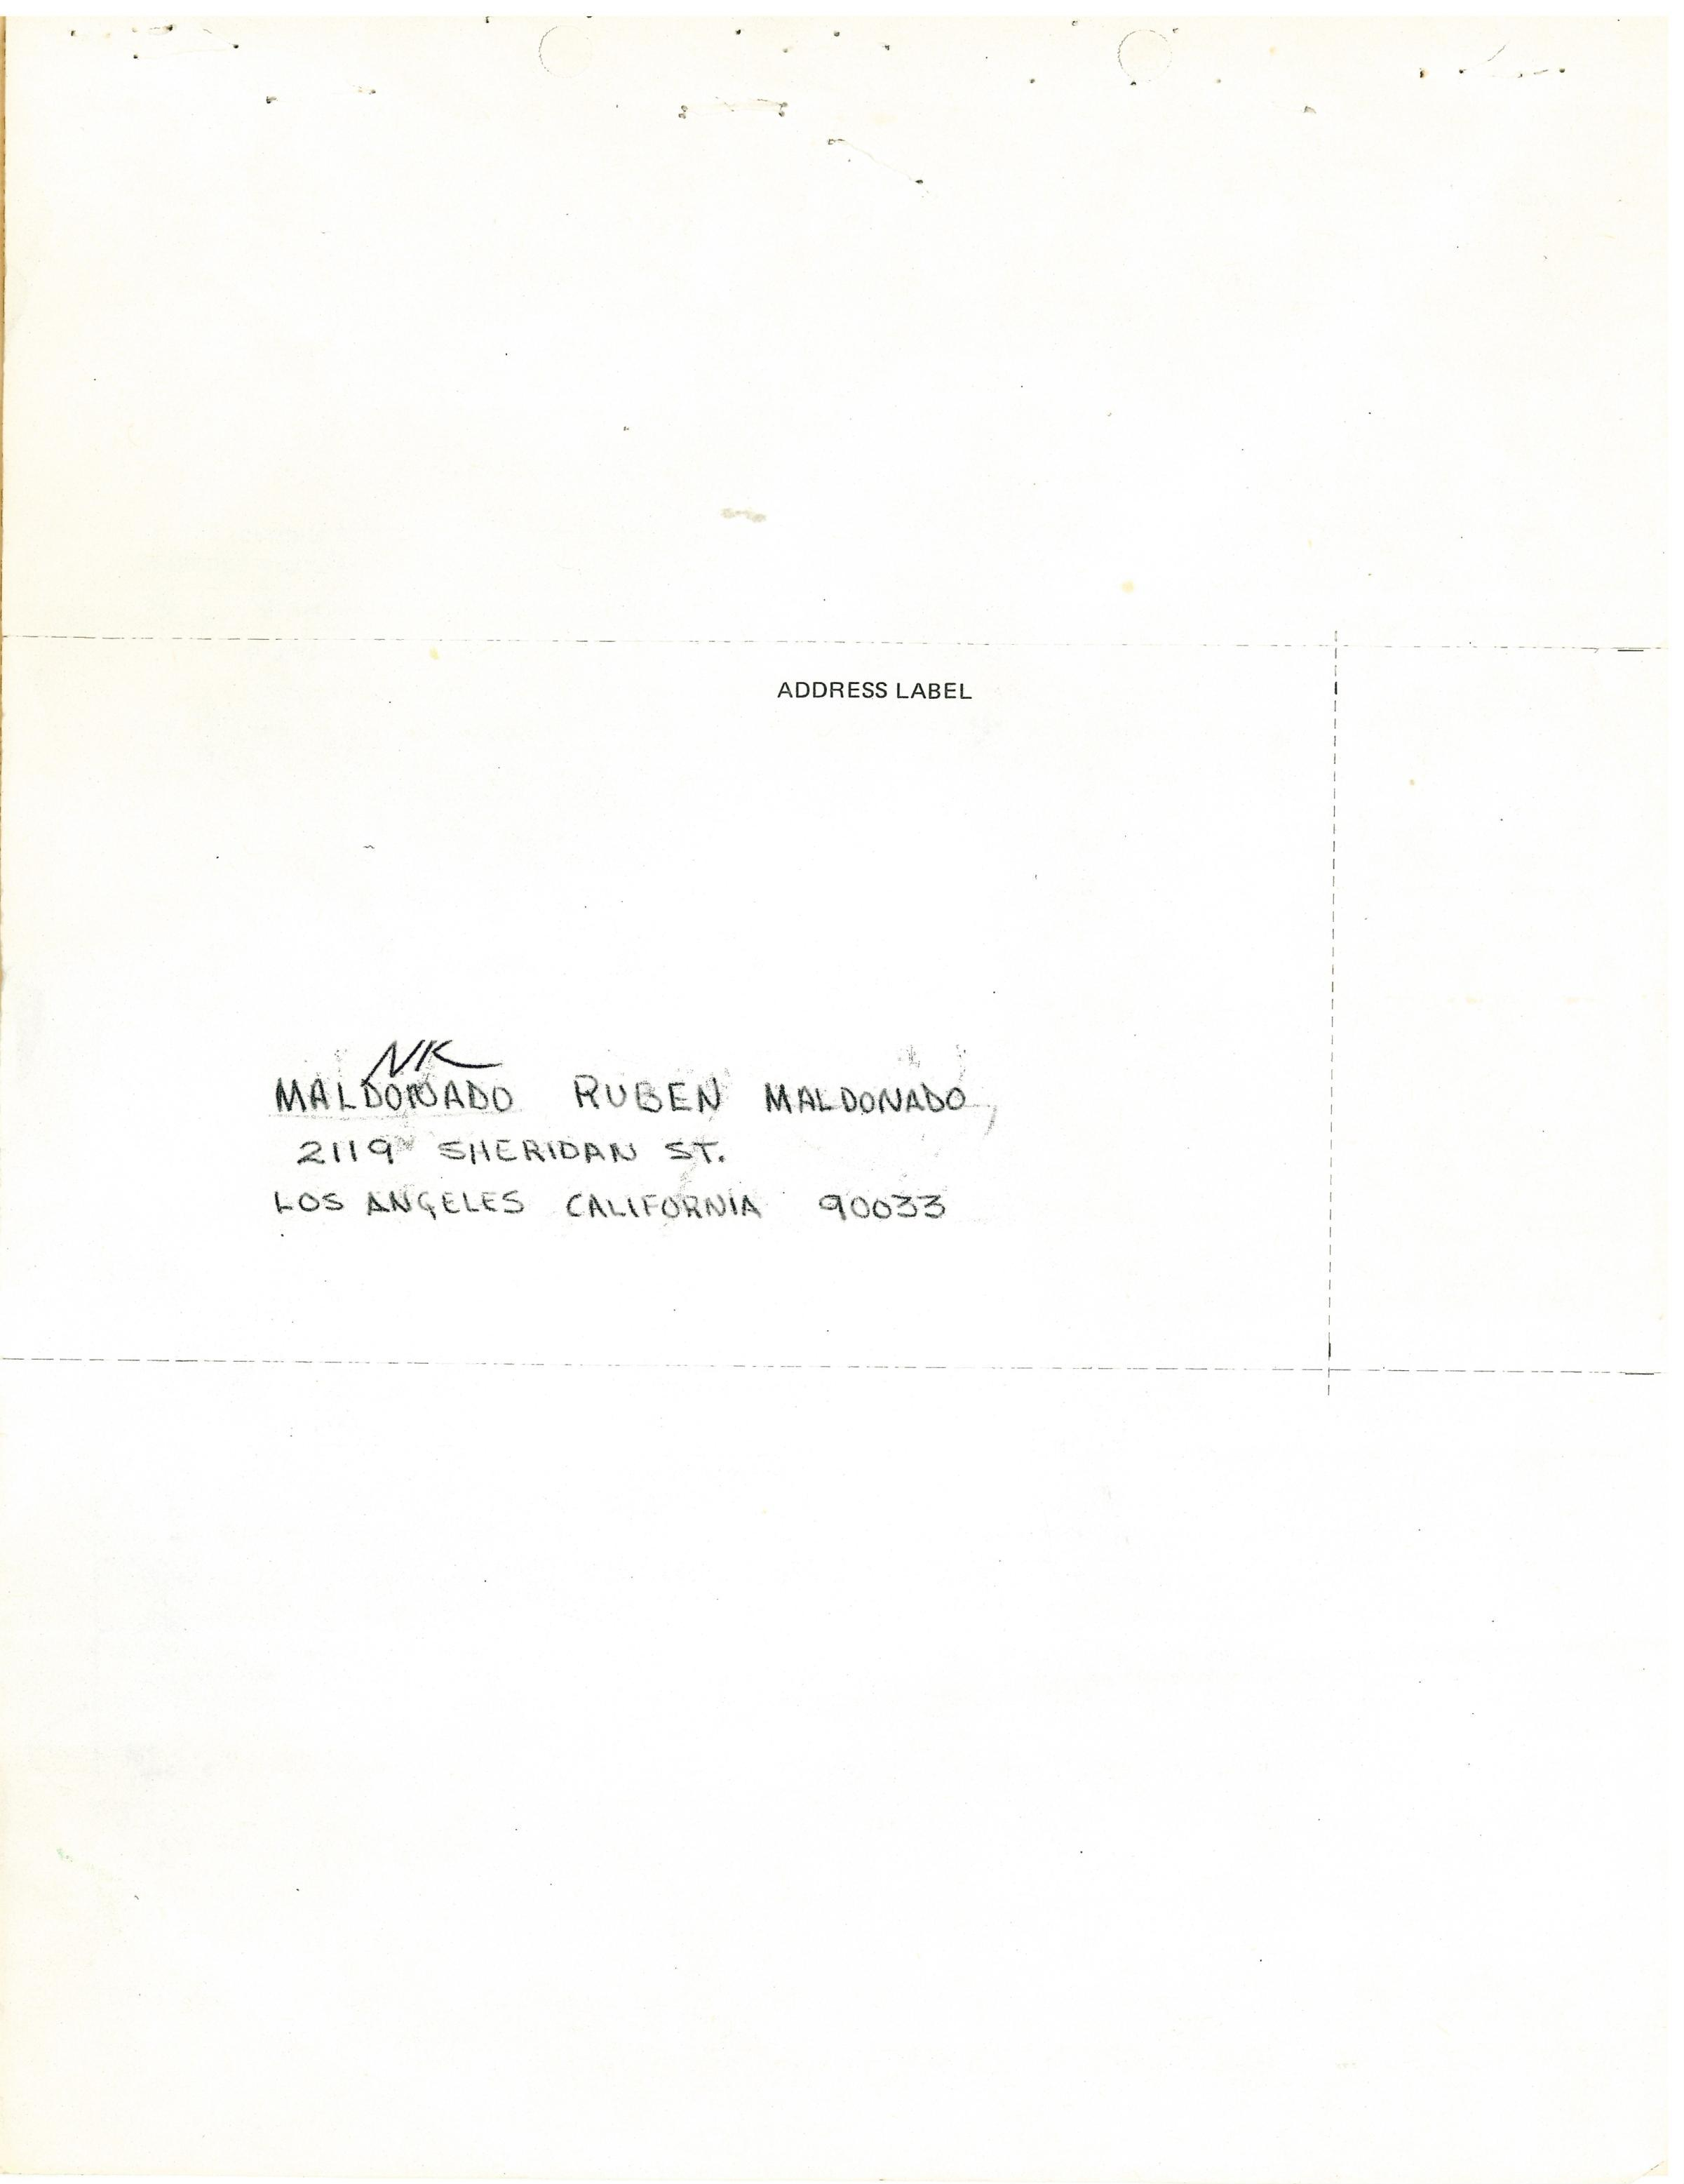 ADDRESS LABEL
NK
MALDONADO RUBEN MALDONADO,
2119 SHERIDAN ST.
LOS ANGELES CALIFORNIA 90033